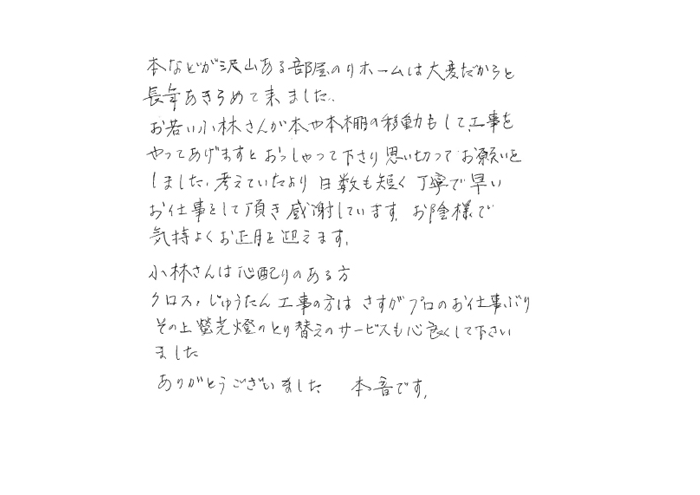 本などが沢山ある部屋のリホームは大変だからと
長年あきらめて来ました。
お若い小林さんが本や本棚の移動もして、工事を
やってあげますとおっしゃって下さり思い切ってお願いを
しました。考えていたより日数も短く丁寧で早い
お仕事をして頂き感謝しています。お陰様で
気持よくお正月を迎えます。
小林さんは心配りのある方
クロス、じゅうたん工事の方はさすがプロのお仕事ぶり
その上螢光燈のとり替えのサービスも心良くして下さい
ました
ありがとうございました 本音です。